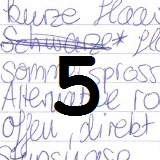 kurze Haare
Schwarze* 
Sommerspross
Alternative ro
offen, direkt
5